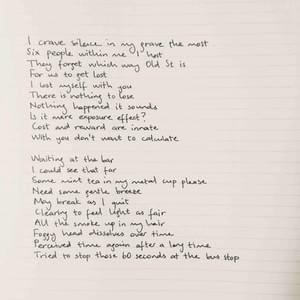 I crave silence in my grave the most
Six people within me I host
They forget which way Old St is
For us to get lost
I lost myself with you
There is nothing to lose
Nothing happened it sounds
Is it mere exposure effect?
Cost and reward are innate
With you don't want to calculate
Waiting at the bar
I could see that far
Some mint tea in my metal cup please
Need some gentle breeze
May break as I quit
Clearly to feel light as fair
All the smoke up in my hair
Foggy head dissolves over time
Perceived time again after a long time
Tried to stop those 60 seconds at the bus stop